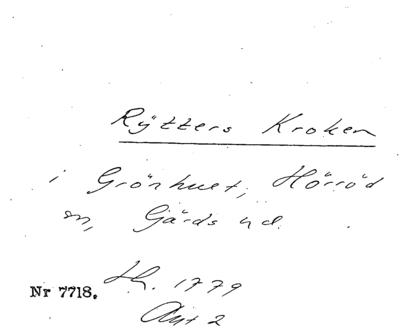 Rÿtters Kroken
i Grönhuet, Hörröd
sn, Gärds hd.
Nr 7718. Lh. 1779
Akt 2